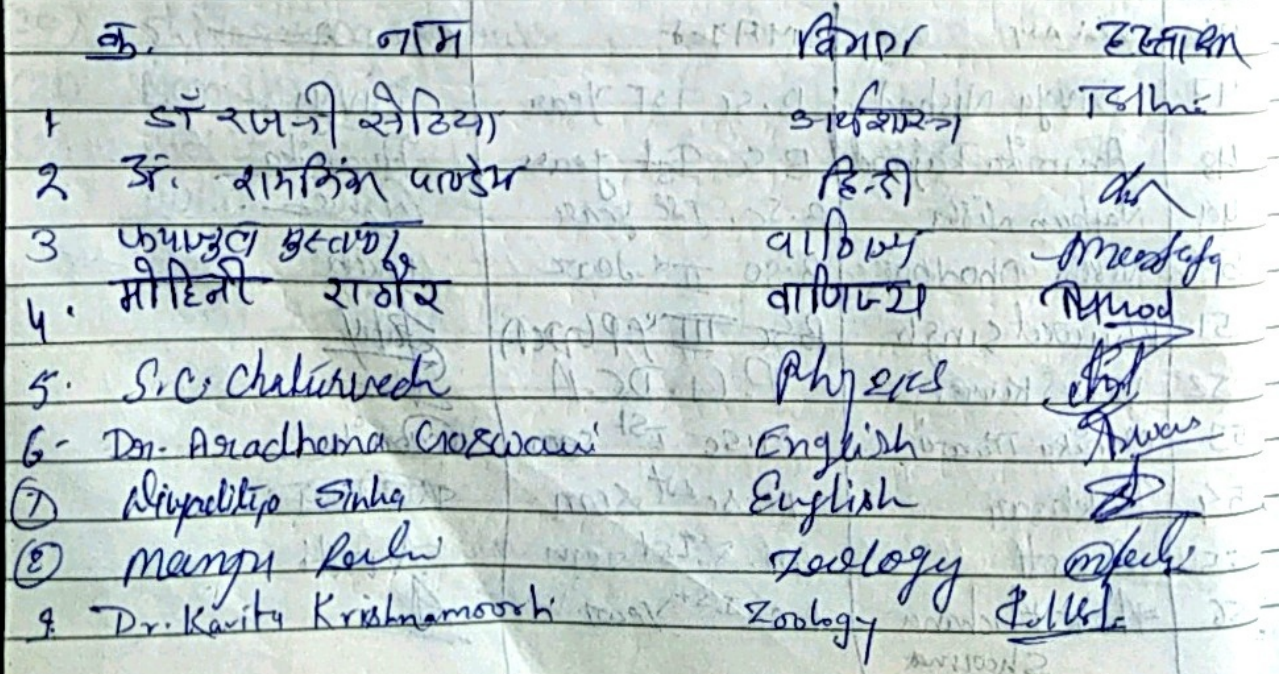 क्र. नाम विभाग हस्ताक्षर
1 डॉ रजनी सेठिया अर्थशास्त्र
2 डॉ. रामकिंकर पाण्डेय हिन्दी
3 मुस्तफा वाणिज्य Mustafa
4. मोहिनी राठौर वाणिज्य
5. S.C. Chaturvedi Physics
6- Dr. Aradhana Goswami English
7 Sinha English
8 Manju Zoology
9. Dr. Kavita Krishnamoorti Zoology